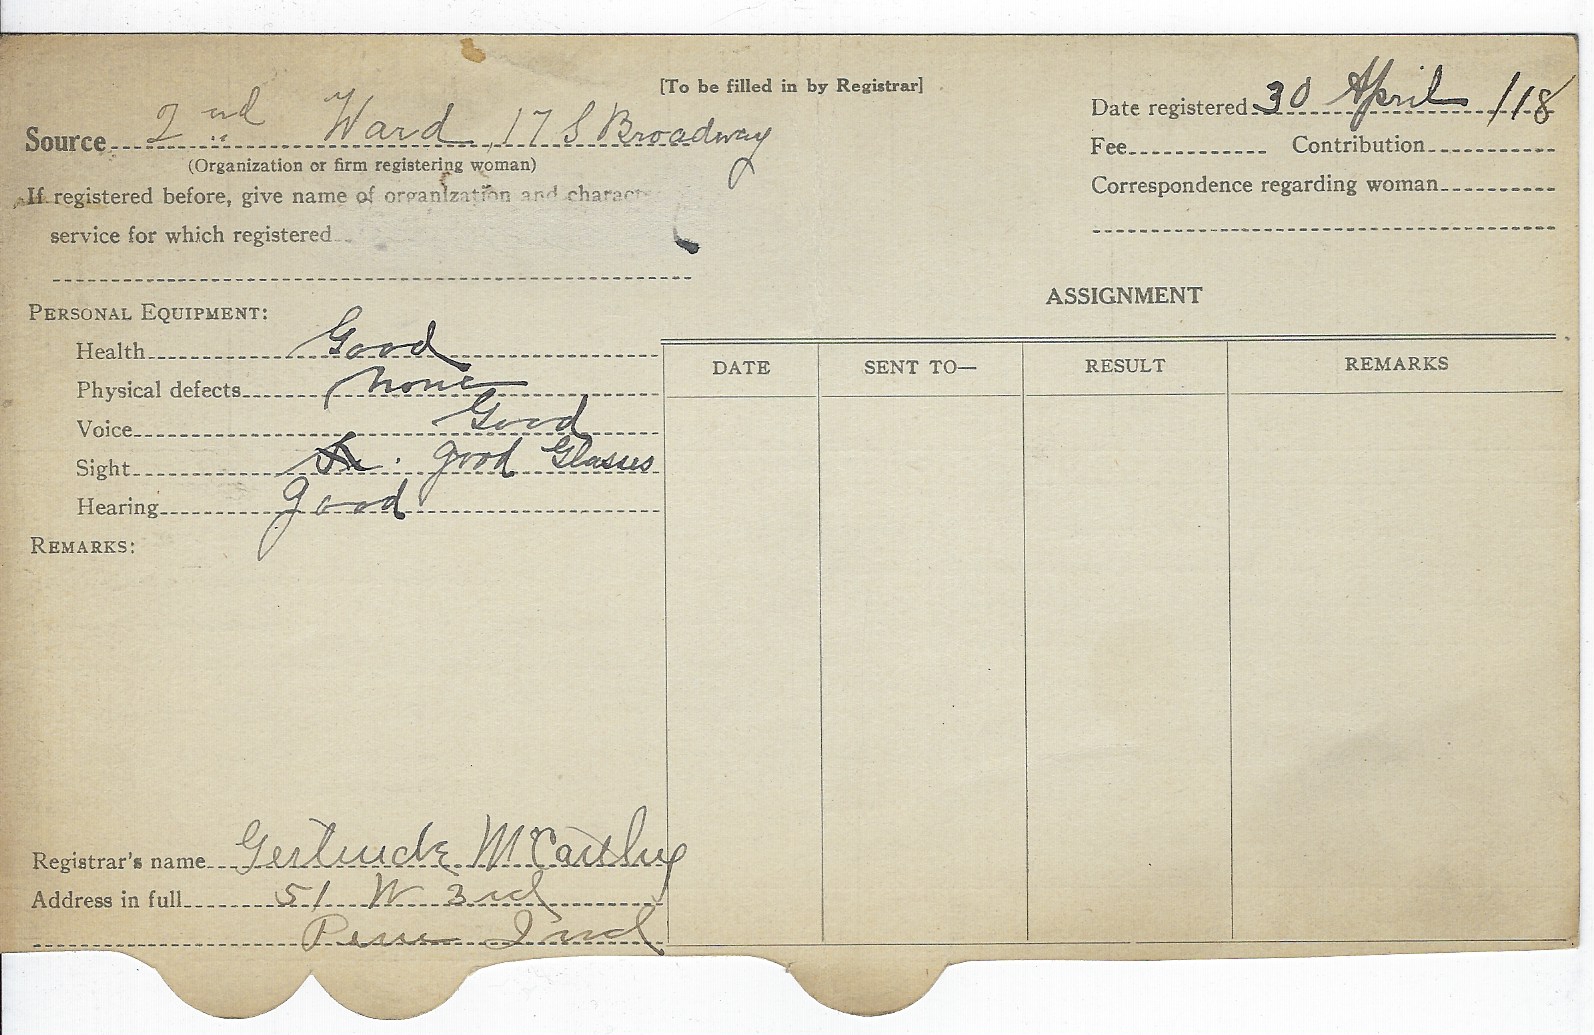 [To be filled in by Registrar]
Source 2nd Ward, 17 S Broadway
(Organization or firm registering woman)
If registered before, give name of organization and charact
service for which registered
Date registered 30 April /18
Fee Contribution
Correspondence regarding woman
PERSONAL EQUIPMENT:
Health Good
Physical defects None
Voice Good
Sight good Glasses
Hearing good
REMARKS:
ASSIGNMENT
DATE SENT TO— RESULT REMARKS
Registrar's name Gertrude McCarthy
Address in full 51 W 3rd
Peru Ind